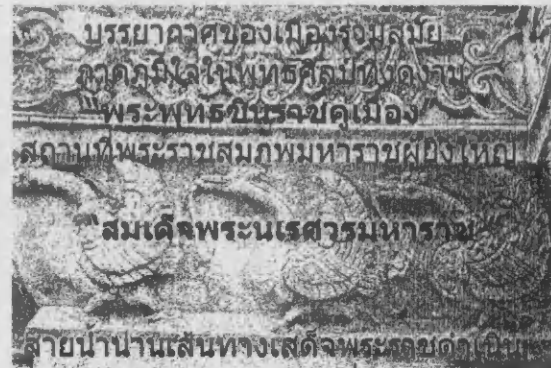 บรรยากาศของเมืองร่มรื่น
ภาคภูมิใจในพุทธศิลป์ที่งดงาม
"พระพุทธชินราชคู่เมือง"
สถานที่พระราชสมภพมหาราชผู้ยิ่งใหญ่
"สมเด็จพระนเรศวรมหาราช"
สายน้ำน่านเส้นทางเสด็จพระราชดำเนิน